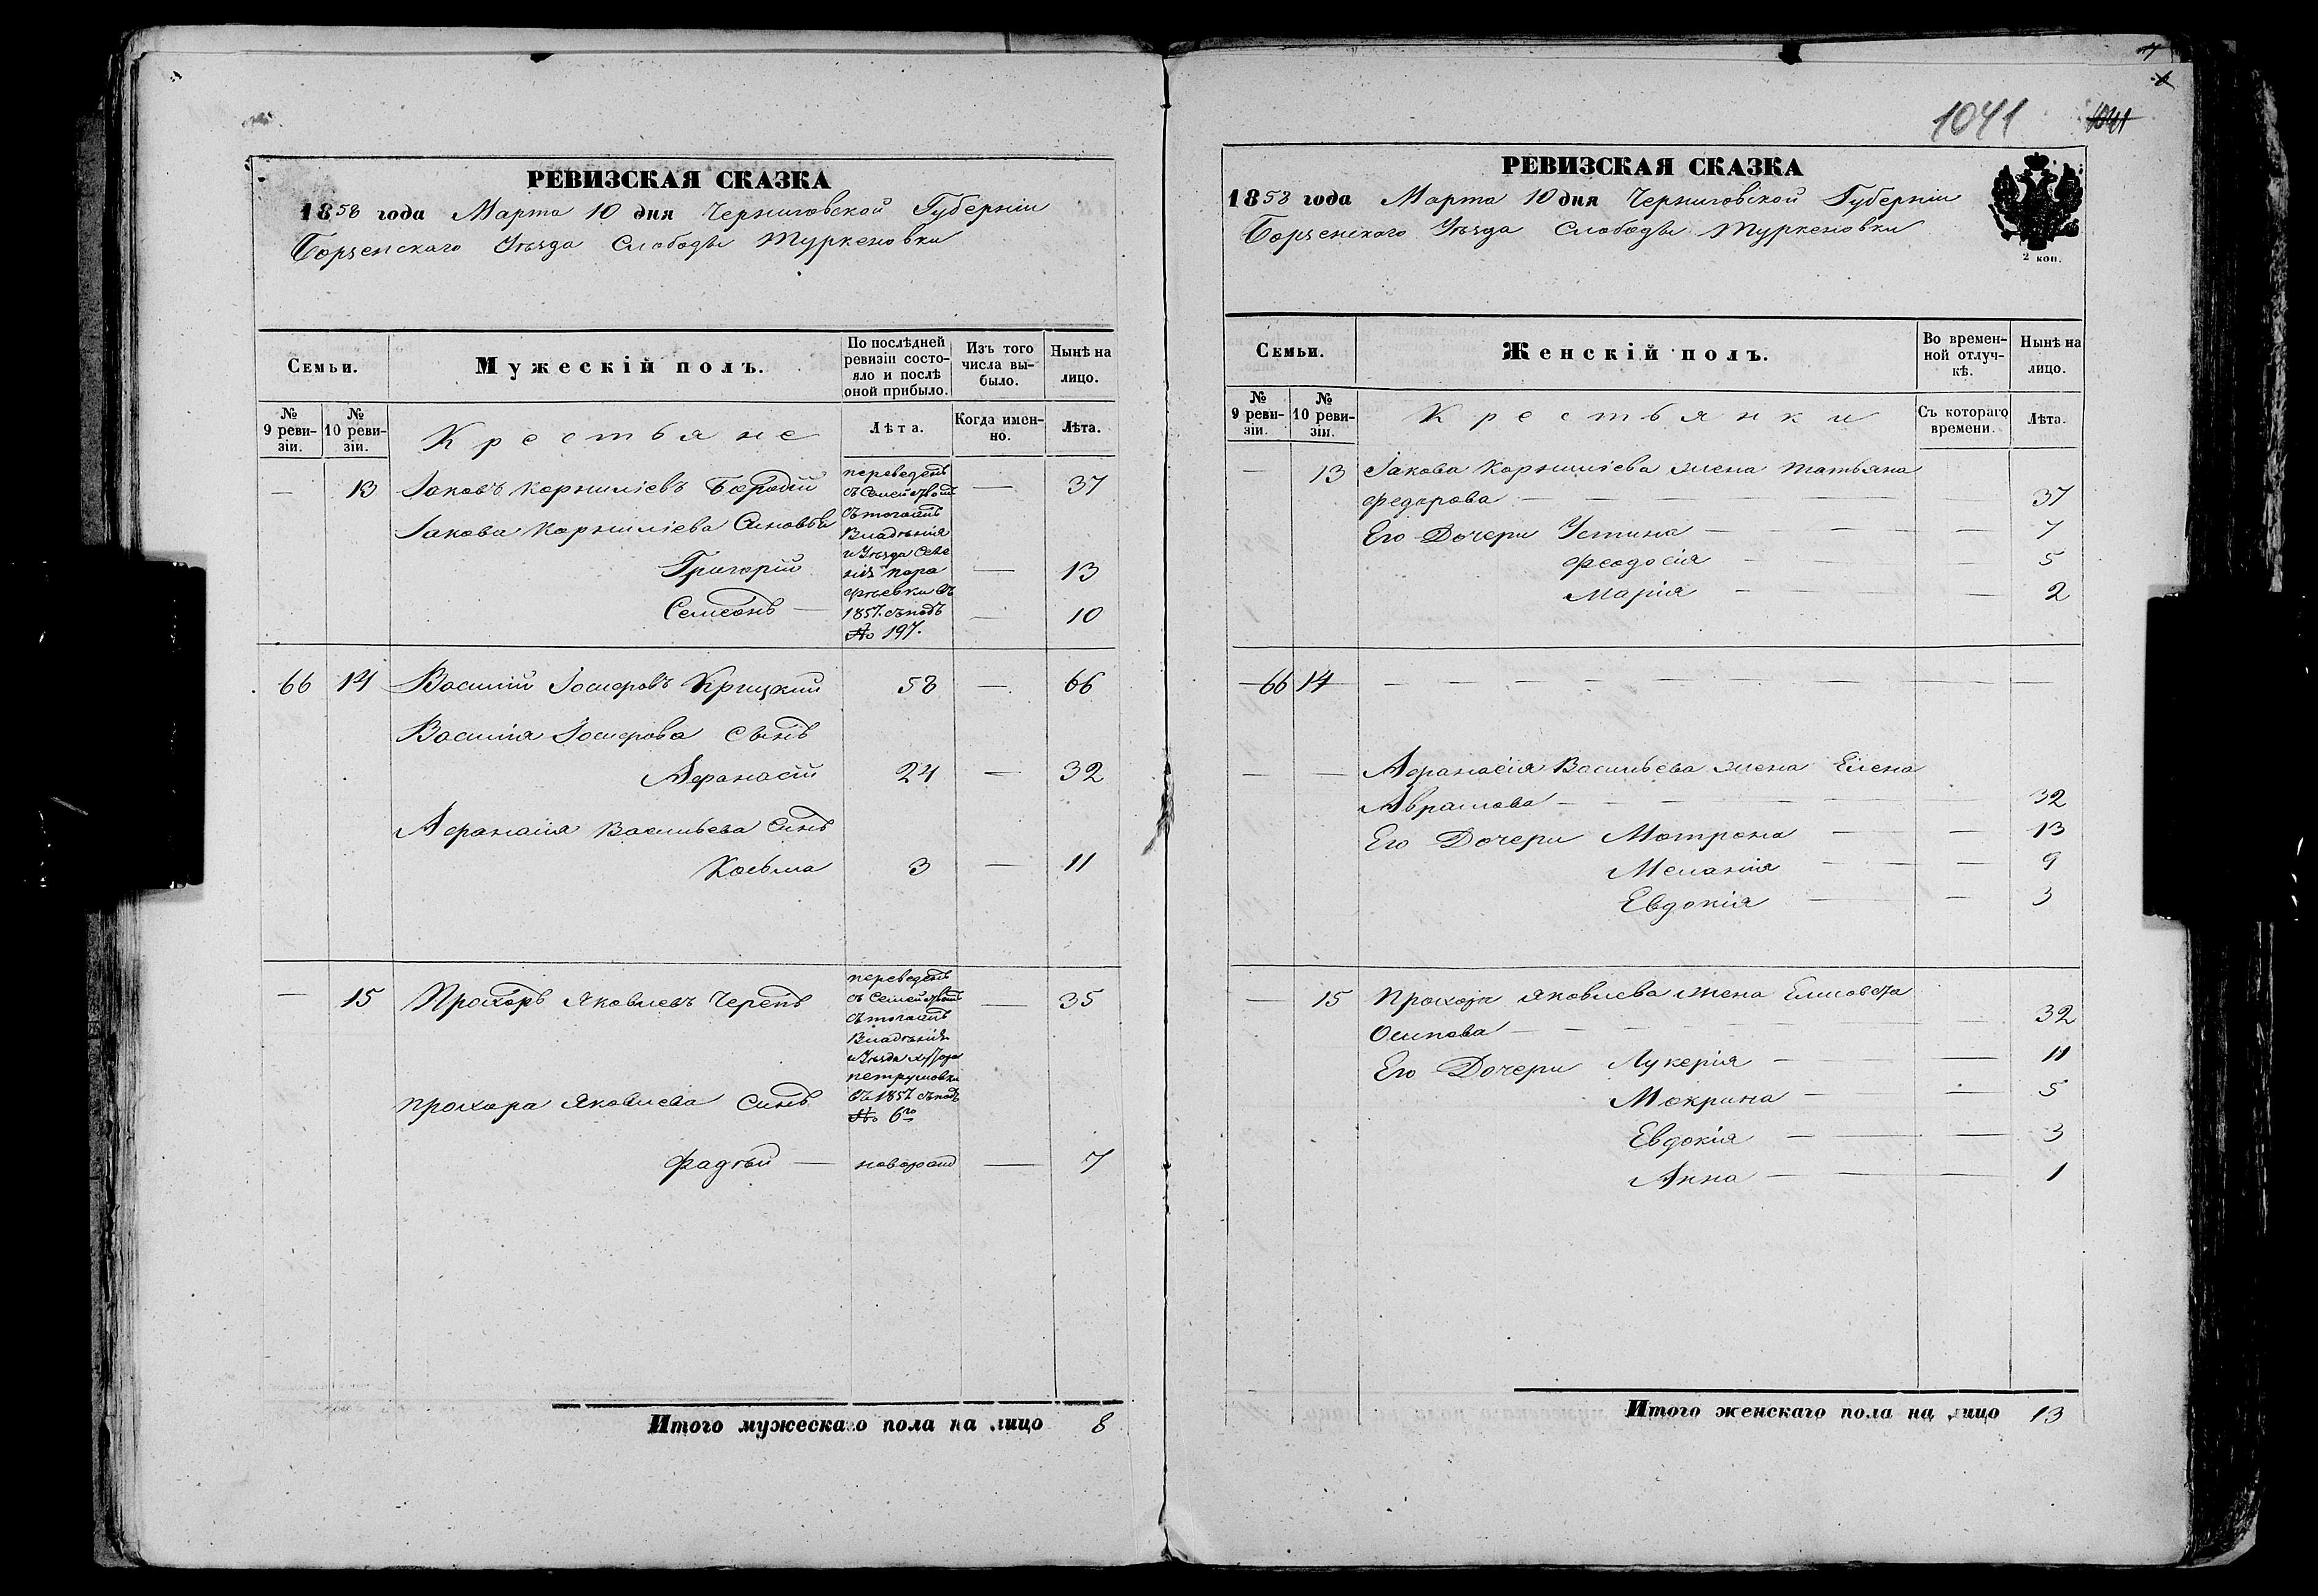 РЕВИЗСКАЯ СКАЗКА
1858 года Марта 10 дня Черниговской Губерніи
Борзенскаго Уѣзда Слободы Туркеновки
Семьи.
Мужескій полъ.
По послѣдней ревизіи состо-
яло и послѣ
оной прибыло.
Изъ того
числа вы-
было.
Нынѣ на
лицо.
№
9 реви-
зіи.
№
10 реви-
зіи.
Крестьяне
Лѣта.
Когда имен-
но.
Лѣта.
— 13 Іаковъ Корниліевъ Бородій — 37
переведенъ
съ Семействомъ
съ тогожъ
Владѣнія
и Уѣзда Селе
нія
1857. съ подъ
№ 197.
Іакова Корниліева Синовья
Григорій — 13
Семеонъ — — 10
66 14 Василій Іосифовъ Крицкий 58 — 66
Василія Іосифова Сынъ
Афанасій 24 — 32
Афанасія Васильева Синъ
Косьма 3 — 11
— 15 Прохоръ Яковлевъ Черепъ — 35
переведенъ
съ Семействомъ
съ тогожъ
Владѣнія
и Уѣзда хутора
петрушовки
въ 1857. съ подъ
№ 6го
прохора Яковлева Синъ
Фадѣй — новорожд — 7
Итого мужескаго пола на лицо 8
7
6
1041 1041
РЕВИЗСКАЯ СКАЗКА
1858 года Марта 10 дня Черниговской Губерніи
Борзенскаго Уѣзда Слободы Туркеновки
2 коп.
Семьи.
Женскій полъ.
Во времен-
ной отлуч-
кѣ.
Нынѣ на
лицо.
№
9 реви-
зіи.
№
10 реви-
зіи.
Крестьянки
Съ котораго
времени.
Лѣта.
— 13 Іакова Корниліева жена татьяна
федорова — — 37
Его Дочери Устина — — 7
Феодосія — — 5
Марія — — 2
66 14 — — —
— — Афанасія Васильева жена Елена
Аврамова — 32
Его Дочери Мотрона — — 13
Меланія — — 9
Евдокія — — 3
— 15 Прохора Яковлева жена Елисовета
Осипова — — 32
Его Дочери Лукерія — — 11
Мокрина — — 5
Евдокія — — 3
Анна — — 1
Итого женскаго пола на лицо 13